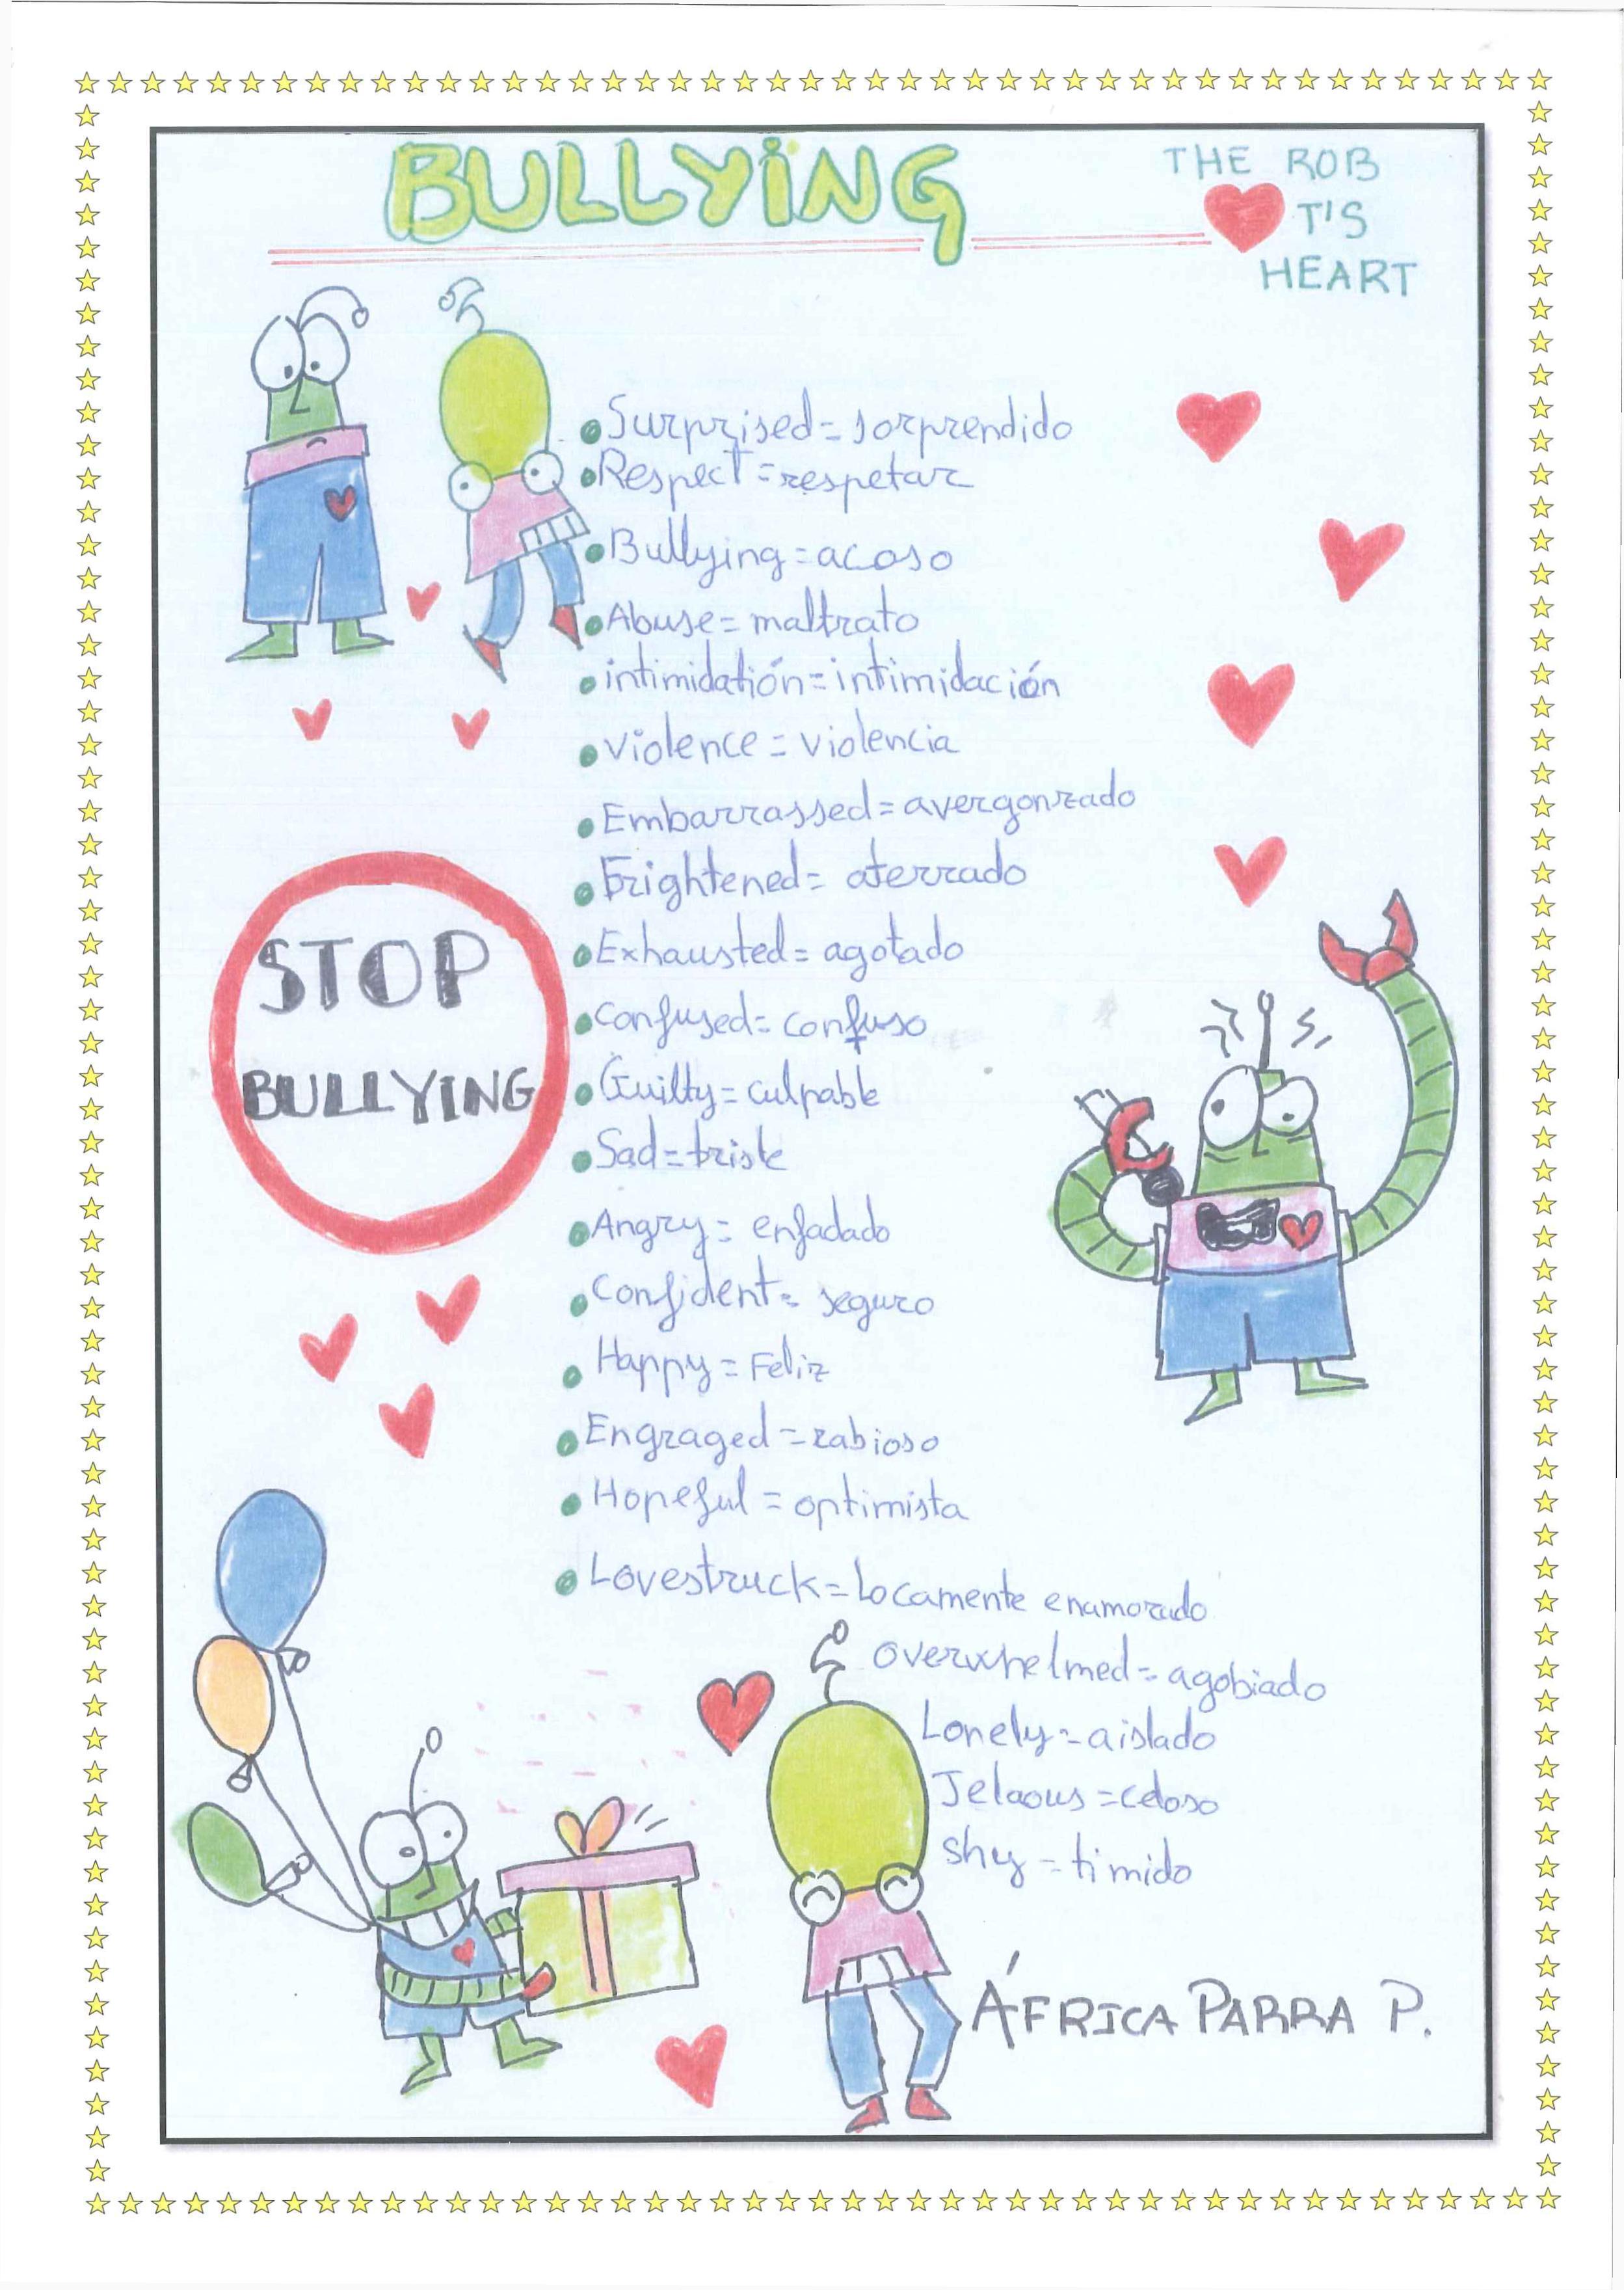 BULLYING
THE ROB
T'S
HEART
Surprised = sorprendido
Respect = respetar
Bullying = acoso
Abuse = maltrato
intimidatión = intimidación
violence = violencia
Embarrassed = avergonzado
Frightened = aterrado
Exhausted = agotado
confused = confuso
Guilty = culpable
Sad = triste
Angry = enfadado
Confident = seguro
Happy = Feliz
Engraged = rabioso
Hopeful = optimista
Lovestruck = Locamente enamorado
overwhelmed = agobiado
Lonely = aislado
Jelaous = celoso
shy = timido
STOP
BULLYING
ÁFRICA PARRA P.